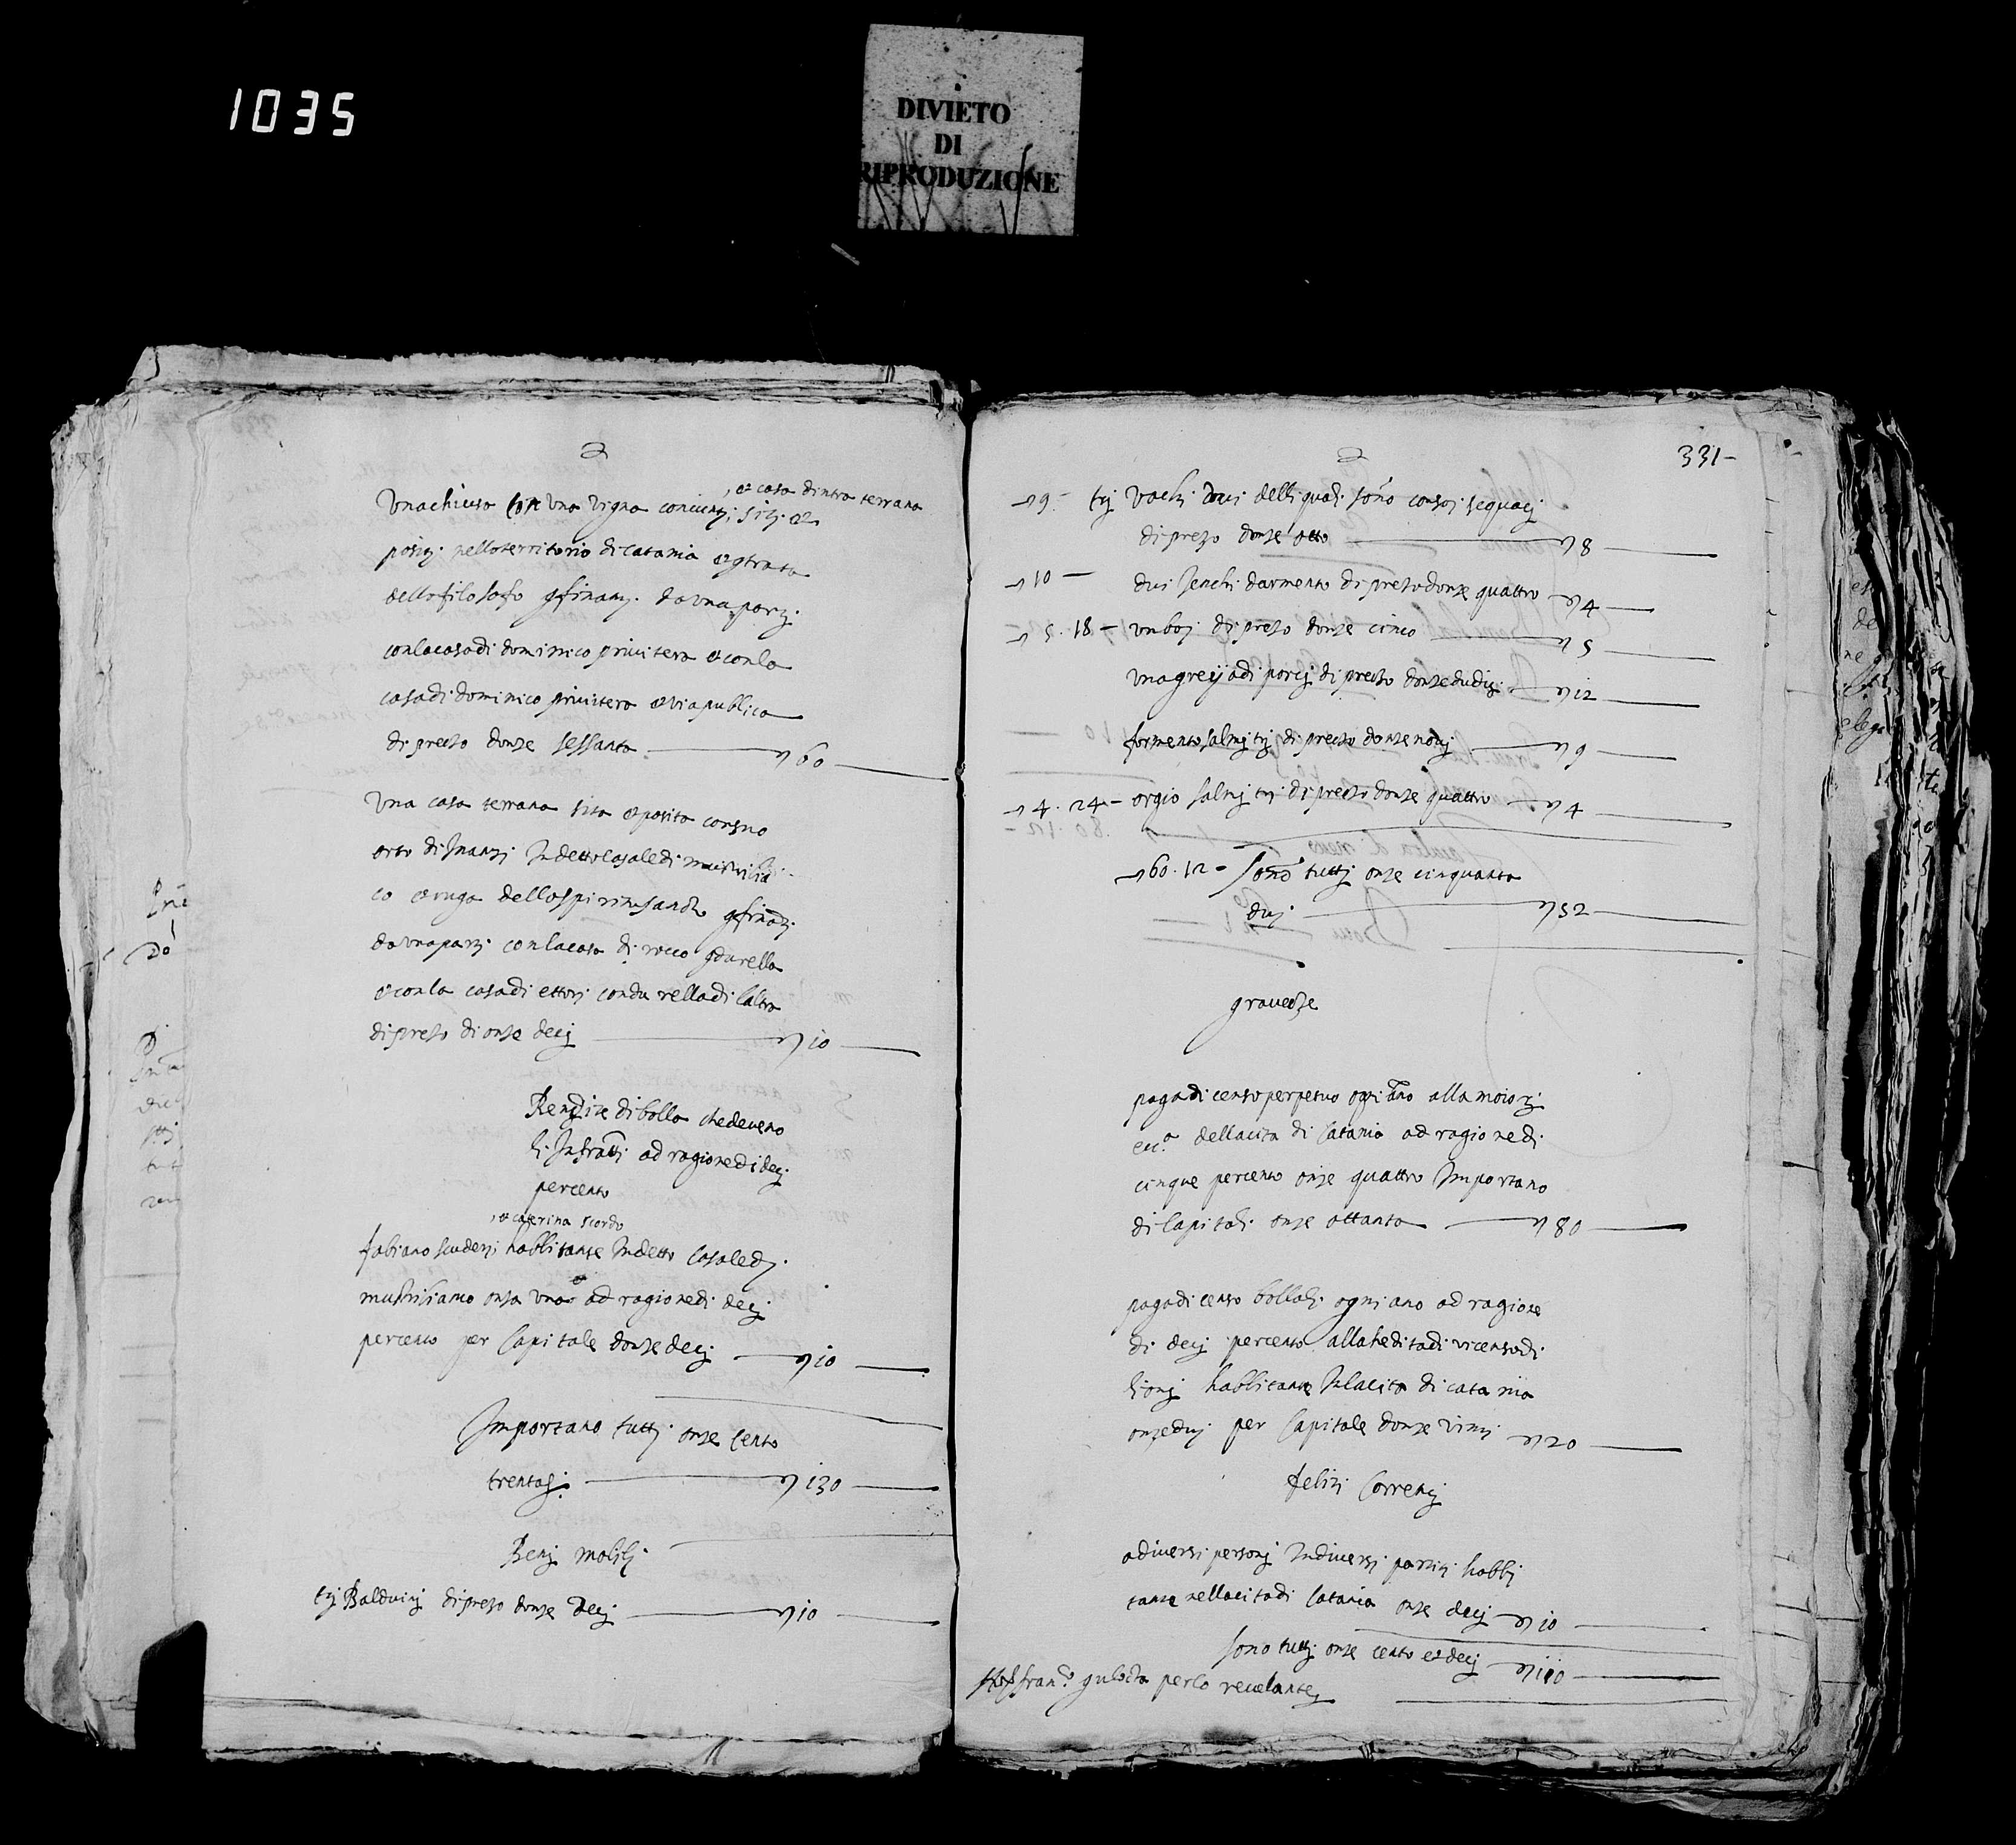 1035
DIVIETO
DI
RIPRODUZIONE
, et casa dintra terrana
Una chiusa con una vigna coniunti siti et
positi nello territorio di Catania et gtrata
dello filosofo gfinanti da una parti
con la casa di dominico privitera et con la
casa di dominico privitera et via publica
di prezzo donze sessanta 60
Una casa terrana sita et posita con suo
orto dinanzi in detto casale di
co et ruga dello spiritu sancto gfinanti
da una parti con la casa di rocco gdurella
et con la casa di ettori condurella di laltra
di prezo di onze deci 10
Rendite di bolla che deveno
li infratti ad ragione di deci
percento
, et caterina scordo
fabiano scuderi habbitante in detto casale di
mustriliano onza una ad ragione di deci
percento per capitale donze deci 10
Importano tutti onze cento
trenta 130
Beni mobili
tri Balduini di prezo donze deci 10
331
9 - tri vachi dui delli quali sono con soi sequaci
di prezo donze otto 8
10 - dui Jenchi darmento di prezo donze quattro 4
5. 18 - un boi di prezo donze cinco 5
una greij di porci di prezzo donze dudici 12
formento salmi tri di prezzo donze novi 9
4. 24 - orgio salmi tri di prezzo donze quattro 4
60. 12 - Sono tutti onze cinquanta
dui 52
gravezze
paga di censo perpetuo ogni ano alla maiori
ecc.a della cita di Catania ad ragione di
cinque percento onze quattro Importano
di capitali onze ottanta 80
paga di censo bollali ogni ano ad ragione
di deci percento alla heredita di vicenso di
lioni habbitante in la cita di catania
onze dui per capitale donze vinti 20
Debiti Correnti
a diversi personi in diversi partiti habbi
tante nella cita di Catania onze deci 10
sono tutti onze cento et deci 110
fran.co gulocta per lo revelante